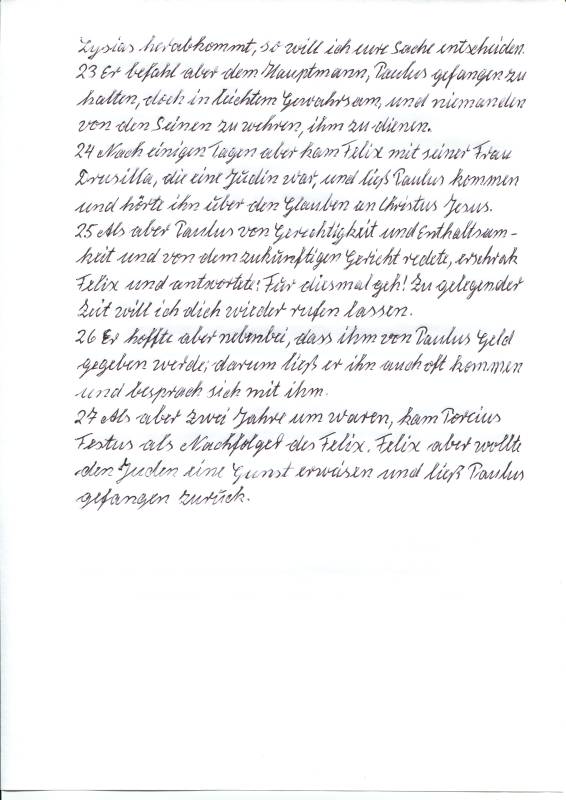 Lysias herabkommt, so will ich eure Sache entscheiden.
23 Er befahl aber dem Hauptmann, Paulus gefangen zu
halten, doch in leichtem Gewahrsam, und niemanden
von den Seinen zu wehren, ihm zu dienen.
24 Nach einigen Tagen aber kam Felix mit seiner Frau
Drusilla, die eine Jüdin war, und ließ Paulus kommen
und hörte ihn über den Glauben an Christus Jesus.
25 Als aber Paulus von Gerechtigkeit und Enthaltsam-
keit und von dem zukünftigen Gericht redete, erschrak
Felix und antwortete: Für diesmal geh! Zu gelegender
Zeit will ich dich wieder rufen lassen.
26 Er hoffte aber nebenbei, dass ihm von Paulus Geld
gegeben werde; darum ließ er ihn auch oft kommen
und besprach sich mit ihm.
27 Als aber zwei Jahre um waren, kam Porcius
Festus als Nachfolger des Felix. Felix aber wollte
den Juden eine Gunst erweisen und ließ Paulus
gefangen zurück.